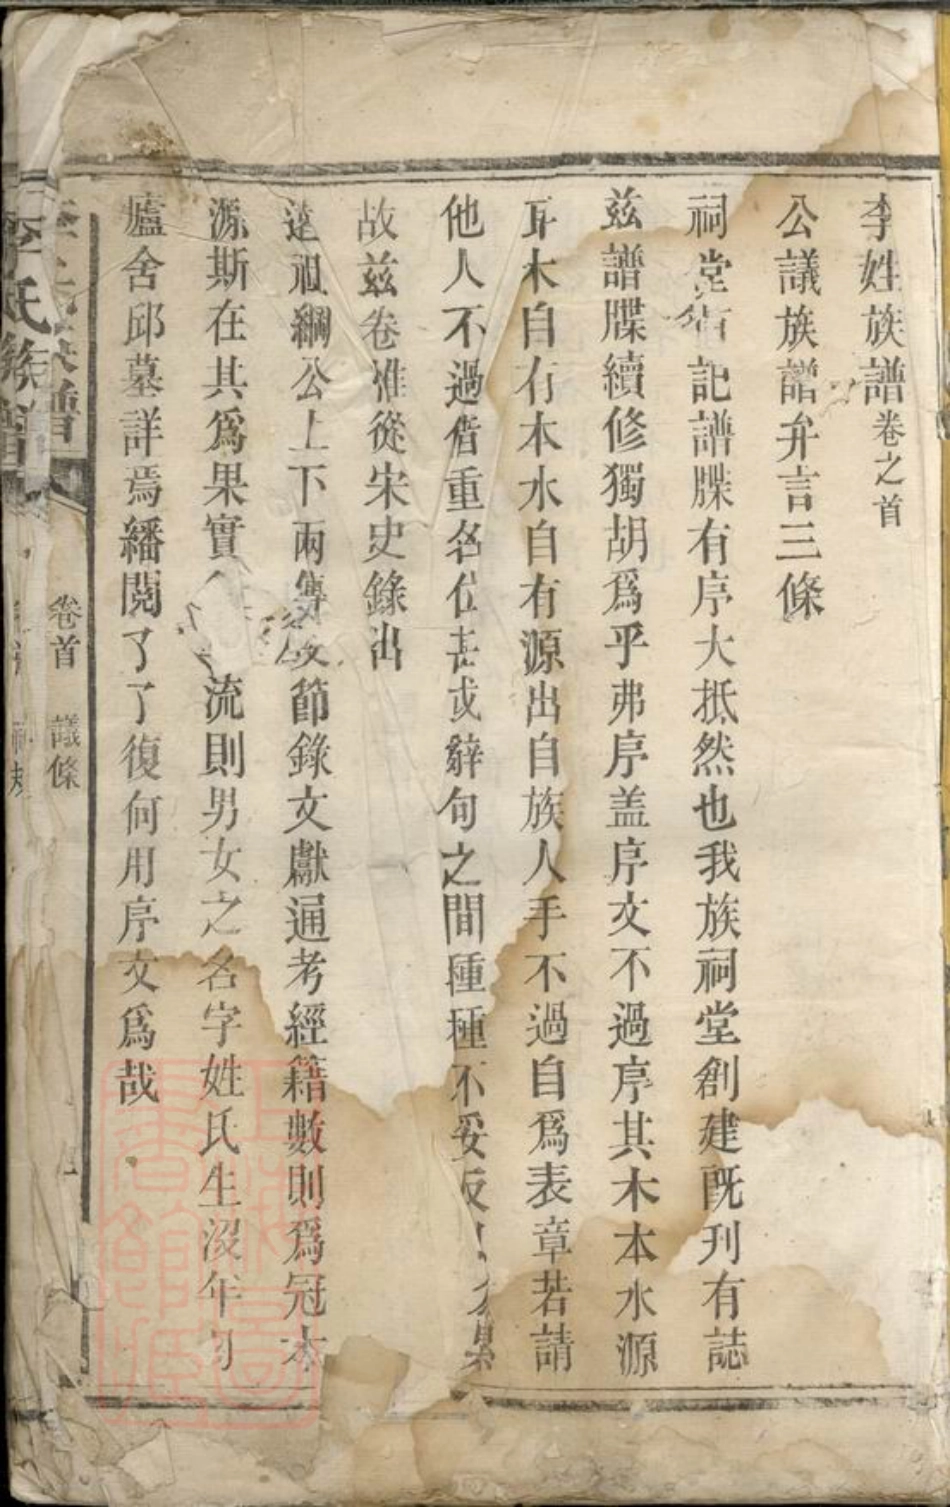 李姓族譜卷之首
公議族譜弁言三條
祠堂有記譜牒有序大抵然也我族祠堂創建既刊有誌
茲譜牒續修獨胡爲乎弗序盖序文不過序其木本水源
耳木自有本水自有源出自族人手不過自爲表章若請
他人不過借重名位甚或辭句之間種種不妥反
故茲卷惟從宋史錄出
遠祖綱公上下兩傳及節錄文獻通考經籍數則爲冠本
源斯在其爲果實 流則男女之名字姓氏生沒年
廬舍邱墓詳焉繙閱了了復何用序文爲哉
李氏族譜
卷首 議條